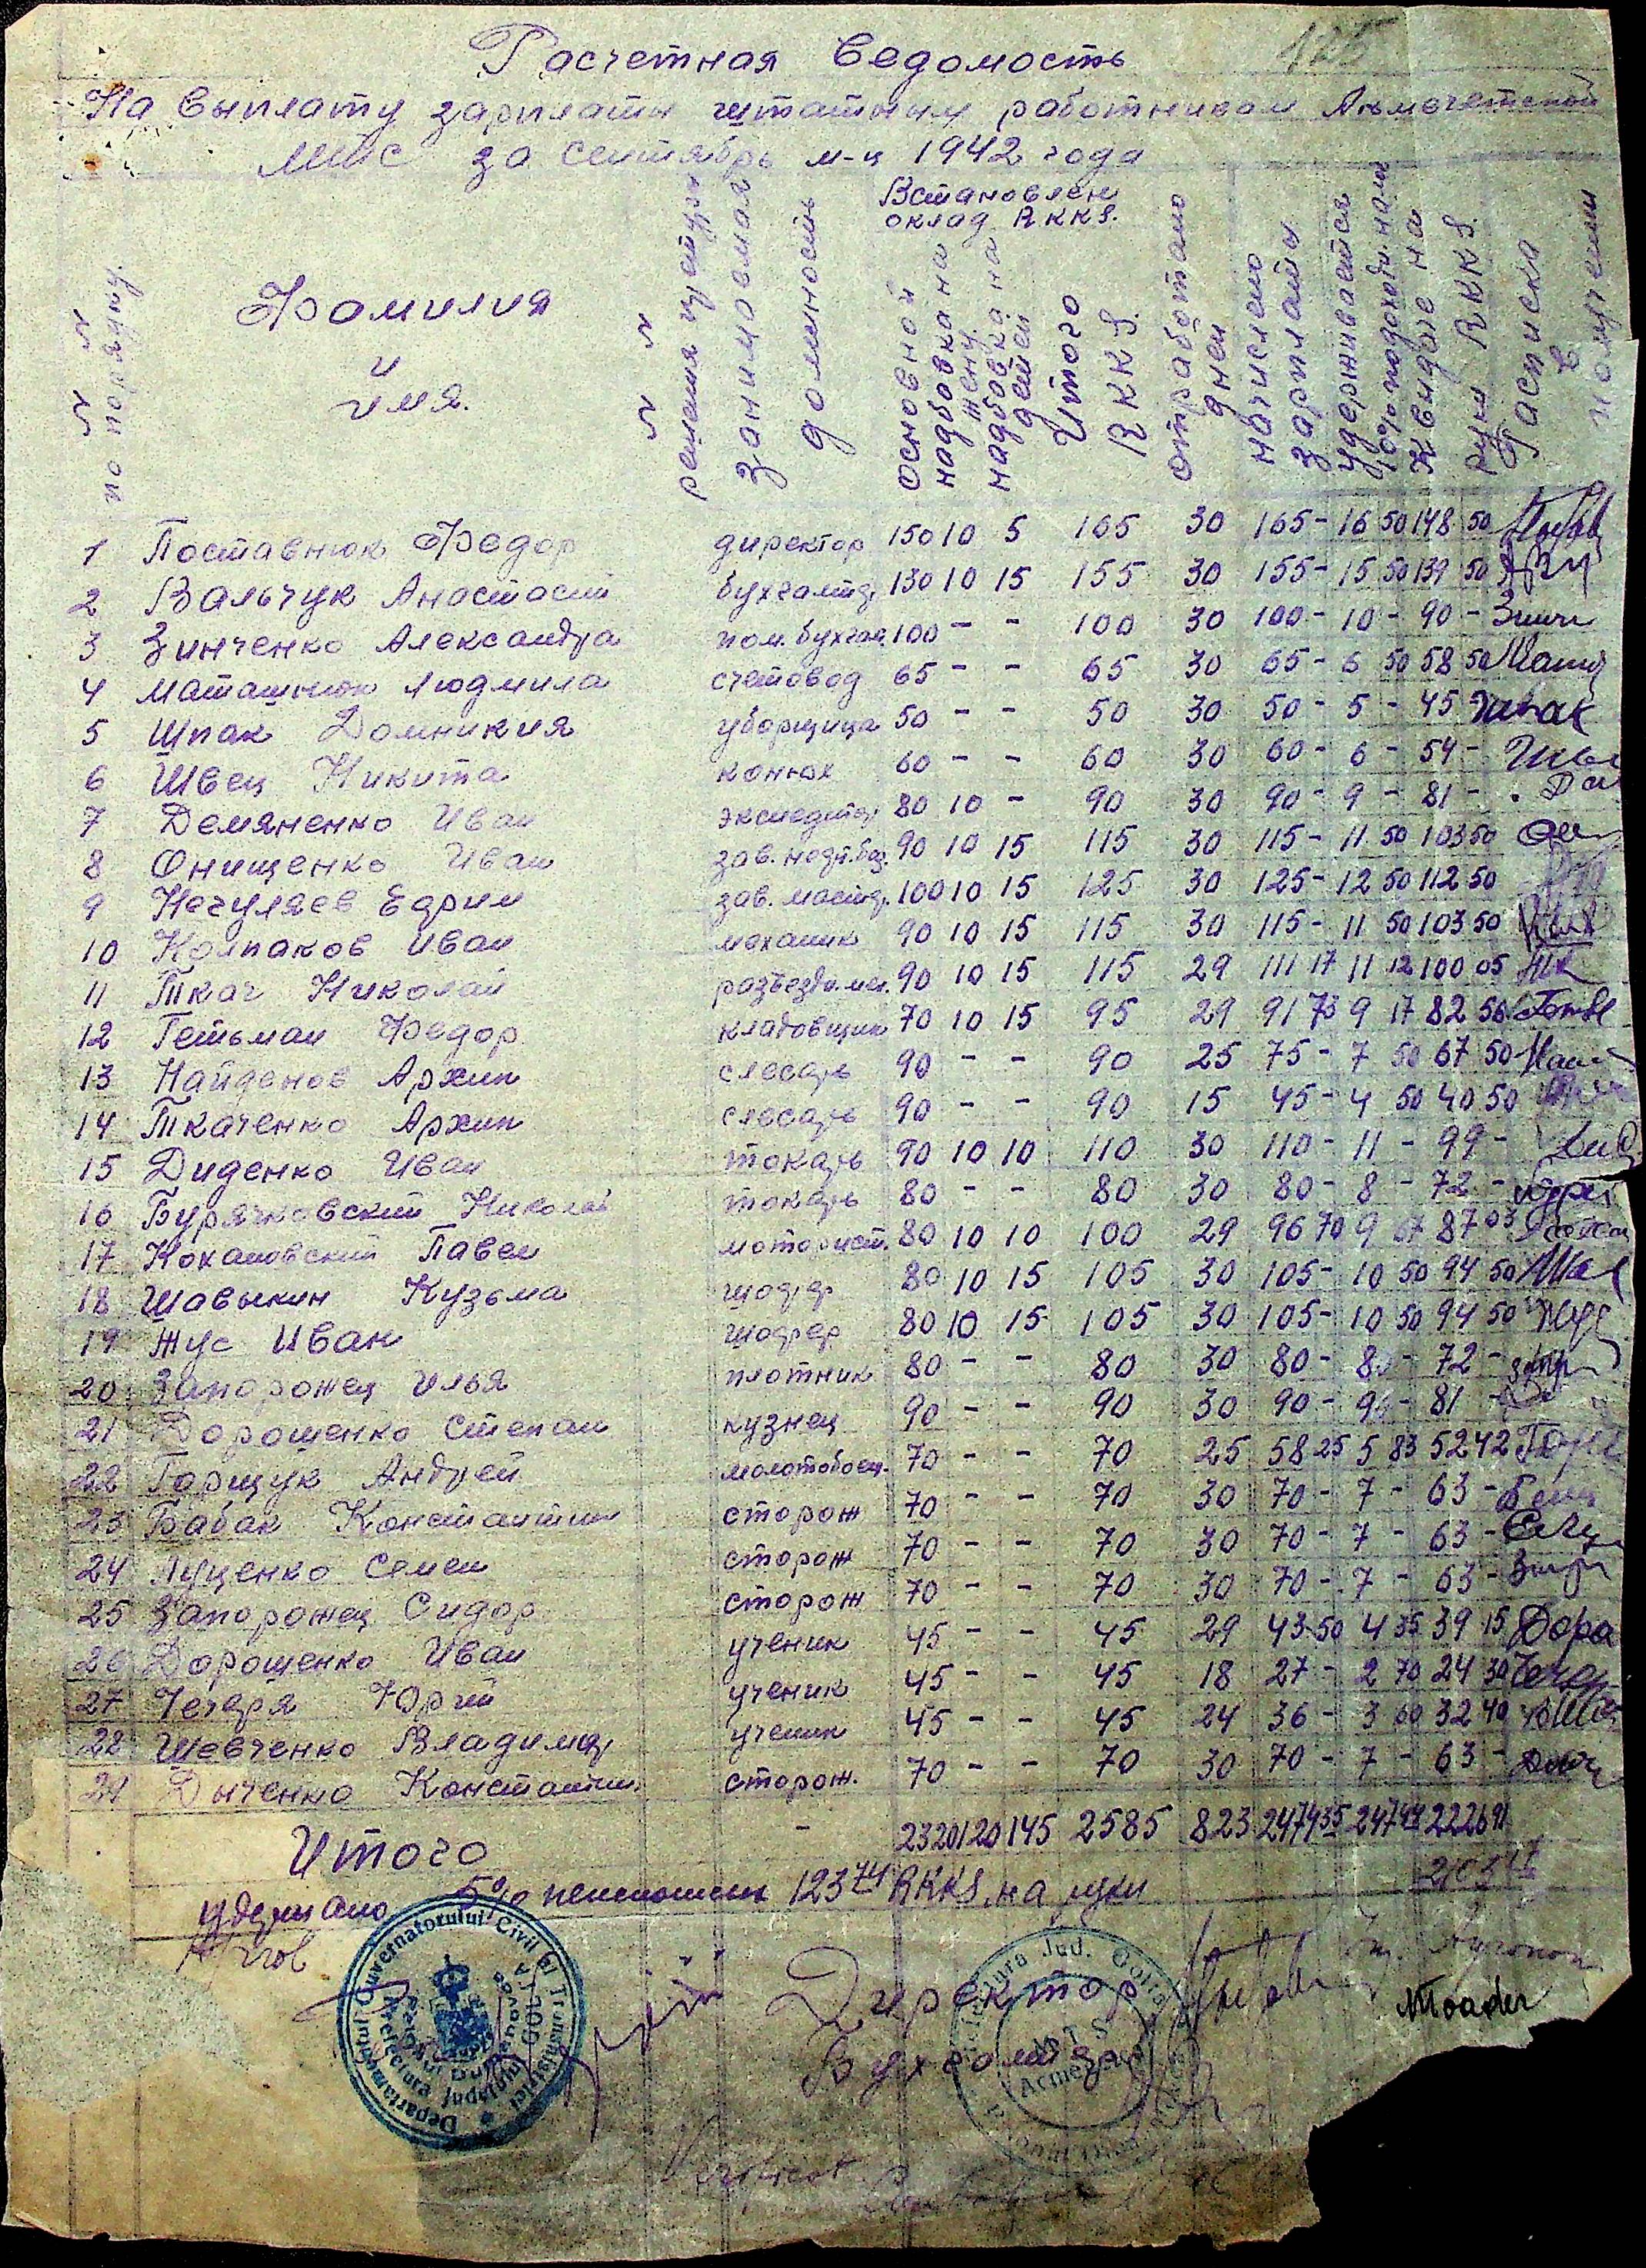 125
Расчетная Ведомость
На выплату зарплаты штатным работникам Акмечетской
МТС за сентябрь м-ц 1942 года
№ № по порядку.
Фамилия и имя.
№ № занимаемая должность
Встановлен оклад RKKS.
основной
надбовка на жену.
надбовка на детей
Итого RKKS.
отработано дней
начислено зарплаты
удерживается 10% подоходн. нало
К выдаче на руки RKKS.
Расписка в получении
1 Поставнюк Федор директор 150 10 5 165 30 165- 16 50 148 50
2 Вальчук Анастасия бухгалтер 130 10 15 155 30 155- 15 50 139 50
3 Зинченко Александра пом. бухгал. 100 - - 100 30 100- 10 - 90 -
4 Людмила счетовод 65 - - 65 30 65- 6 50 58 50
5 Шпак Домникия уборщица 50 - - 50 30 50- 5 - 45 -
6 Швец Никита конюх 60 - - 60 30 60- 6 - 54 -
7 Демяненко Иван экспедитор 80 10 - 90 30 90- 9 - 81 -
8 Онищенко Иван зав. 90 10 15 115 30 115- 11 50 103 50
9 Нечуляев зав. мастер. 100 10 15 125 30 125- 12 50 112 50
10 Колпаков Иван механик 90 10 15 115 30 115- 11 50 103 50
11 Ткач Николай разъездн. мех. 90 10 15 115 29 111 17 11 12 100 05
12 Гетьман Федор кладовщик 70 10 15 95 29 91 73 9 17 82 56
13 Найденов Архип слесарь 90 - - 90 25 75- 7 50 67 50
14 Ткаченко Архип слесарь 90 - - 90 15 45- 4 50 40 50
15 Диденко Иван токарь 90 10 10 110 30 110- 11 - 99 -
16 Бурячковский Николай токарь 80 - - 80 30 80- 8 - 72 -
17 Кохановский Павел моторист. 80 10 10 100 29 96 70 9 67 87 03
18 Шавыкин Кузьма шофер 80 10 15 105 30 105- 10 50 94 50
19 Жус Иван шофер 80 10 15 105 30 105- 10 50 94 50
20 Запорожец Илья плотник 80 - - 80 30 80- 8 - 72 -
21 Дорошенко Степан кузнец 90 - - 90 30 90- 9 - 81 -
22 Горщук Андрей молотобоец. 70 - - 70 25 58 25 5 83 52 42
23 Бабак Константин сторож 70 - - 70 30 70- 7 - 63 -
24 Луценко Семен сторож 70 - - 70 30 70- 7 - 63 -
25 Запорожец Сидор сторож 70 - - 70 30 70- 7 - 63 -
26 Дорошенко Иван ученик 45 - - 45 29 43-50 4 35 39 15
27 Чечеря Юрий ученик 45 - - 45 18 27- 2 70 24 30
28 Шевченко Владимир ученик 45 - - 45 24 36- 3 60 32 40
29 Дыченко Константин. сторож. 70 - - 70 30 70- 7 - 63 -
Итого - 2320 120 145 2585 823 2474 35 247 44 2226 91
удержано 5% пенсионных 123 74 RKKS. на руки
Директор
Бухгалтер
Moader
Departamentul Guvernatorului Civil al Transnistriei
Prefectura Județului Golta
Prefectura Jud. Golta
M T S
Acmeceti